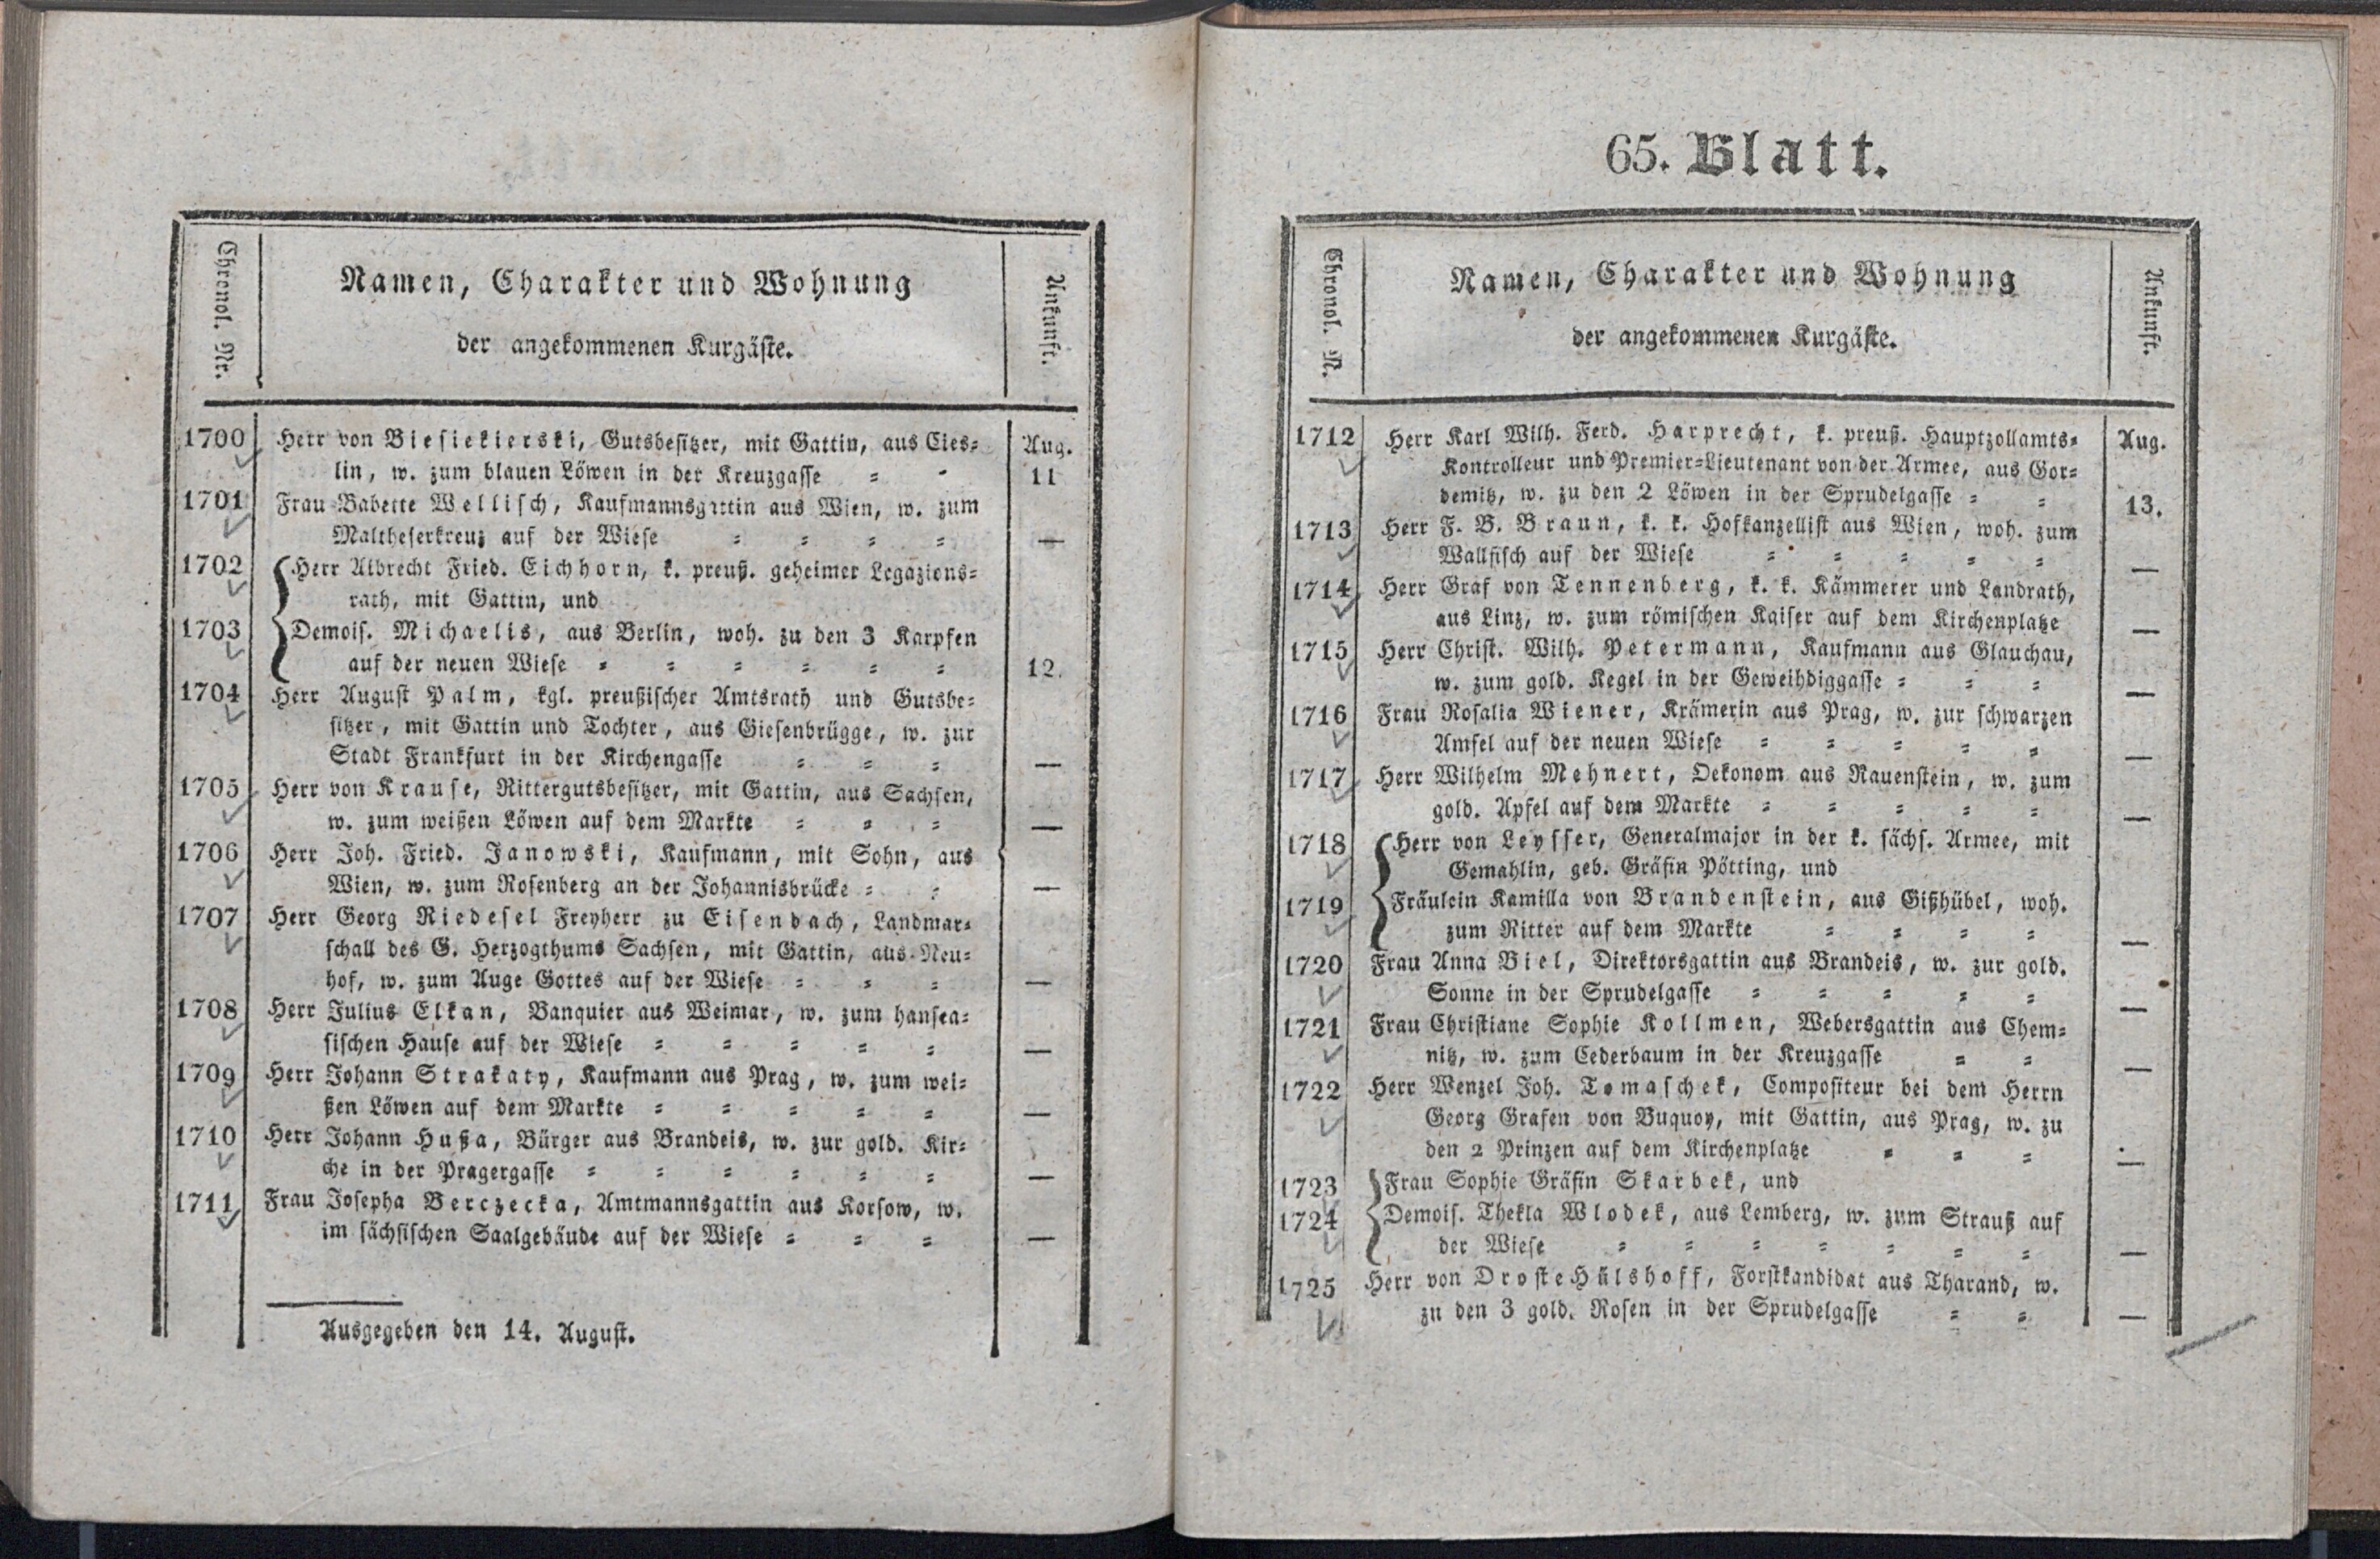 Chronol. Nr.
Namen, Charakter und Wohnung
der angekommenen Kurgäste.
Ankunft.
1700 Herr von Biesiekierski, Gutsbesitzer, mit Gattin, aus Cies= Aug.
lin, w. zum blauen Löwen in der Kreuzgasse = = 11
1701 Frau Babette Wellisch, Kaufmannsgattin aus Wien, w. zum
Maltheserkreuz auf der Wiese = = = = —
1702 Herr Albrecht Fried. Eichhorn, k. preuß. geheimer Legazions=
rath, mit Gattin, und
1703 Demois. Michaelis, aus Berlin, woh. zu den 3 Karpfen
auf der neuen Wiese = = = = = = 12.
1704 Herr August Palm, kgl. preußischer Amtsrath und Gutsbe=
sitzer, mit Gattin und Tochter, aus Giesenbrügge, w. zur
Stadt Frankfurt in der Kirchengasse = = = —
1705 Herr von Krause, Rittergutsbesitzer, mit Gattin, aus Sachsen,
w. zum weißen Löwen auf dem Markte = = = —
1706 Herr Joh. Fried. Janowski, Kaufmann, mit Sohn, aus
Wien, w. zum Rosenberg an der Johannisbrücke = = —
1707 Herr Georg Riedesel Freyherr zu Eisenbach, Landmar=
schall des G. Herzogthums Sachsen, mit Gattin, aus Neu=
hof, w. zum Auge Gottes auf der Wiese = = = —
1708 Herr Julius Elkan, Banquier aus Weimar, w. zum hansea=
sischen Hause auf der Wiese = = = = = —
1709 Herr Johann Strakaty, Kaufmann aus Prag, w. zum wei=
ßen Löwen auf dem Markte = = = = = —
1710 Herr Johann Hußa, Bürger aus Brandeis, w. zur gold. Kir=
che in der Pragergasse = = = = = = —
1711 Frau Josepha Berczecka, Amtmannsgattin aus Korsow, w.
im sächsischen Saalgebäude auf der Wiese = = = —
Ausgegeben den 14. August.
65. Blatt.
Chronol. N.
Namen, Charakter und Wohnung
der angekommenen Kurgäste.
Ankunft.
1712 Herr Karl Wilh. Ferd. Harprecht, k. preuß. Hauptzollamts= Aug.
Kontrolleur und Premier=Lieutenant von der Armee, aus Gor=
demitz, w. zu den 2 Löwen in der Sprudelgasse = = 13.
1713 Herr F. B. Braun, k. k. Hofkanzellist aus Wien, woh. zum
Wallfisch auf der Wiese = = = = = —
1714 Herr Graf von Tennenberg, k. k. Kämmerer und Landrath,
aus Linz, w. zum römischen Kaiser auf dem Kirchenplatze —
1715 Herr Christ. Wilh. Petermann, Kaufmann aus Glauchau,
w. zum gold. Kegel in der Geweihdiggasse = = = —
1716 Frau Rosalia Wiener, Krämerin aus Prag, w. zur schwarzen
Amsel auf der neuen Wiese = = = = = —
1717 Herr Wilhelm Mehnert, Oekonom aus Rauenstein, w. zum
gold. Apfel auf dem Markte = = = = = —
1718 Herr von Leysser, Generalmajor in der k. sächs. Armee, mit
Gemahlin, geb. Gräfin Pötting, und
1719 Fräulein Kamilla von Brandenstein, aus Gißhübel, woh.
zum Ritter auf dem Markte = = = = —
1720 Frau Anna Biel, Direktorsgattin aus Brandeis, w. zur gold.
Sonne in der Sprudelgasse = = = = = —
1721 Frau Christiane Sophie Kollmen, Webersgattin aus Chem=
nitz, w. zum Cederbaum in der Kreuzgasse = = —
1722 Herr Wenzel Joh. Tomaschek, Compositeur bei dem Herrn
Georg Grafen von Buquoy, mit Gattin, aus Prag, w. zu
den 2 Prinzen auf dem Kirchenplatze = = = —
1723 Frau Sophie Gräfin Skarbek, und
1724 Demois. Thekla Wlodek, aus Lemberg, w. zum Strauß auf
der Wiese = = = = = = = —
1725 Herr von Droste Hülshoff, Forstkandidat aus Tharand, w.
zu den 3 gold. Rosen in der Sprudelgasse = = —